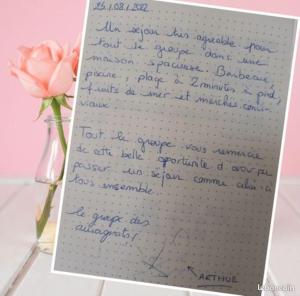 24/08/2022
Un séjour très agréable pour
tout le groupe dans une
maison spacieuse. Barbecue,
piscine, plage à 2 minutes à pied,
fruits de mer et marchés convi-
viaux.
Tout le groupe vous remercie
de cette belle opportunité d'avoir pu
passer un séjour comme celui-ci
tous ensemble.
le groupe des
auvergnats!
ARTHUR
leboncoin